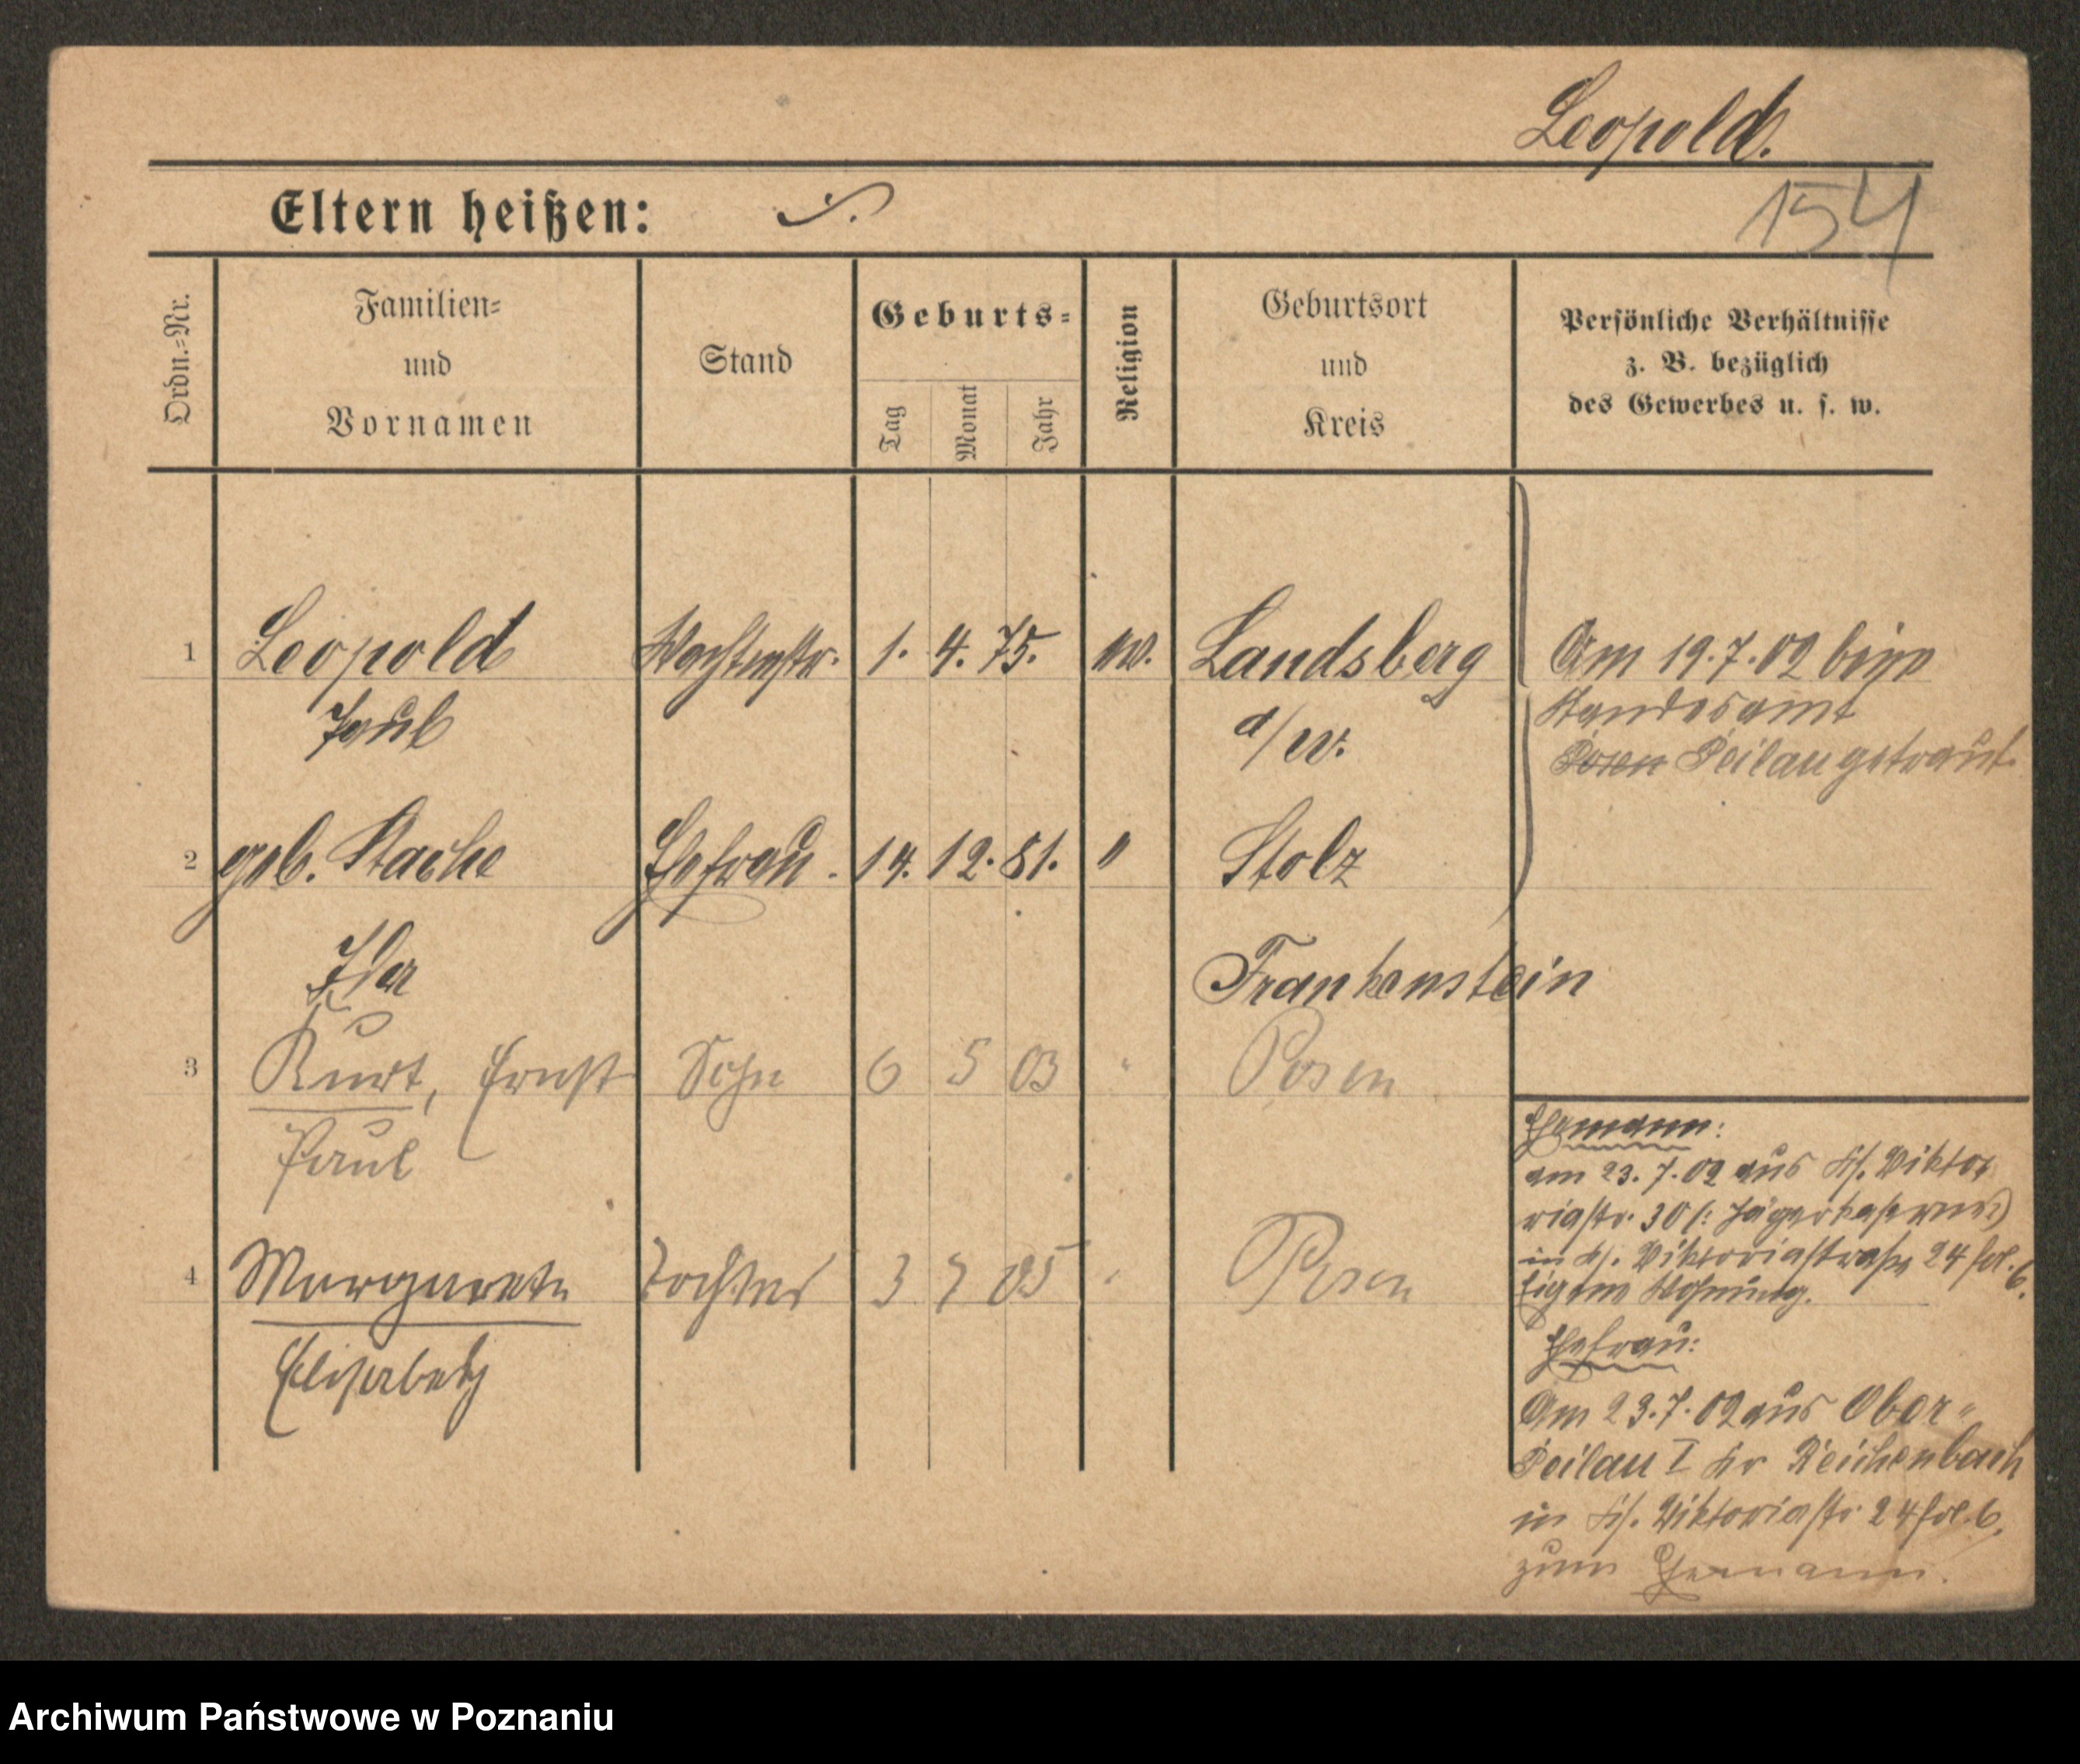 Leopold.
154
Eltern heißen:
Ordn.-Nr.
Familien-
und
Vornamen
Stand
Geburts-
Tag
Monat
Jahr
Religion
Geburtsort
und
Kreis
Persönliche Verhältnisse
z. B. bezüglich
des Gewerbes u. s. w.
1 Leopold Wachtmstr. 1. 4. 75. ev. Landsberg
Paul a/W.
Am 19.7.02 beim
Standesamt
Posen Peilau getraut.
2 geb. Stache Ehefrau. 14. 12. 81. " Stolz
Ida Frankenstein
3 Kurt, Ernst Sohn 6 5 03 " Posen
Paul
4 Margarete Tochter 3 7 05 " Posen
Elisabeth
Ehemann:
am 23.7.02 aus Vikto
riastr. 30 (: Jägerkaserne)
in Viktoriastraße 24 fol. 6.
Eigene Wohnung.
Ehefrau:
Am 23.7.02 aus Ober-
Peilau I Kr Reichenbach
in Viktoriastr. 24 fol. 6.
zum Ehemann.
Archiwum Państwowe w Poznaniu